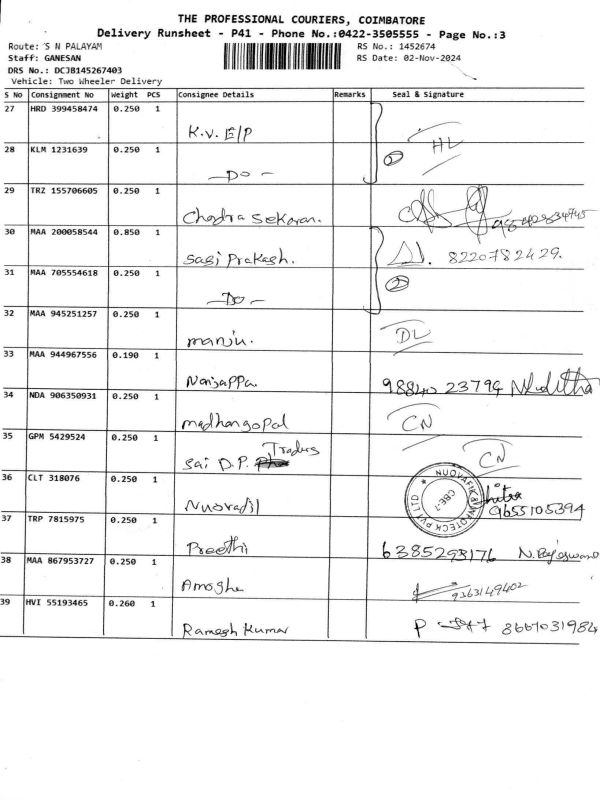 THE PROFESSIONAL COURIERS, COIMBATORE
Delivery Runsheet - P41 - Phone No.:0422-3505555 - Page No.:3
Route: S N PALAYAM
RS No.: 1452674
Staff: GANESAN
RS Date: 02-Nov-2024
DRS No.: DCJB145267403
Vehicle: Two Wheeler Delivery
S No Consignment No Weight PCS Consignee Details Remarks Seal & Signature
27 HRD 399458474 0.250 1
K.V. E/P
HL
28 KLM 1231639 0.250 1
2
-DO-
29 TRZ 155706605 0.250 1
Chandra Sekaran.
30 MAA 200058544 0.850 1
Sasi Prakash. 8220782429.
31 MAA 705554618 0.250 1
-DO- 2
32 MAA 945251257 0.250 1
manju. DL
33 MAA 944967556 0.190 1
98840 23794
34 NDA 906350931 0.250 1
madhangopal CN
35 GPM 5429524 0.250 1
Traders
Sai D.P. CN
36 CLT 318076 0.250 1
NUOVAFIK INFOTECH PVT LTD
CBE-7
9655105394
37 TRP 7815975 0.250 1
Preethi 6385293176 N.
38 MAA 867953727 0.250 1
Amogha 9363149402
39 HVI 55193465 0.260 1
Ramesh Kumar P 8667031984